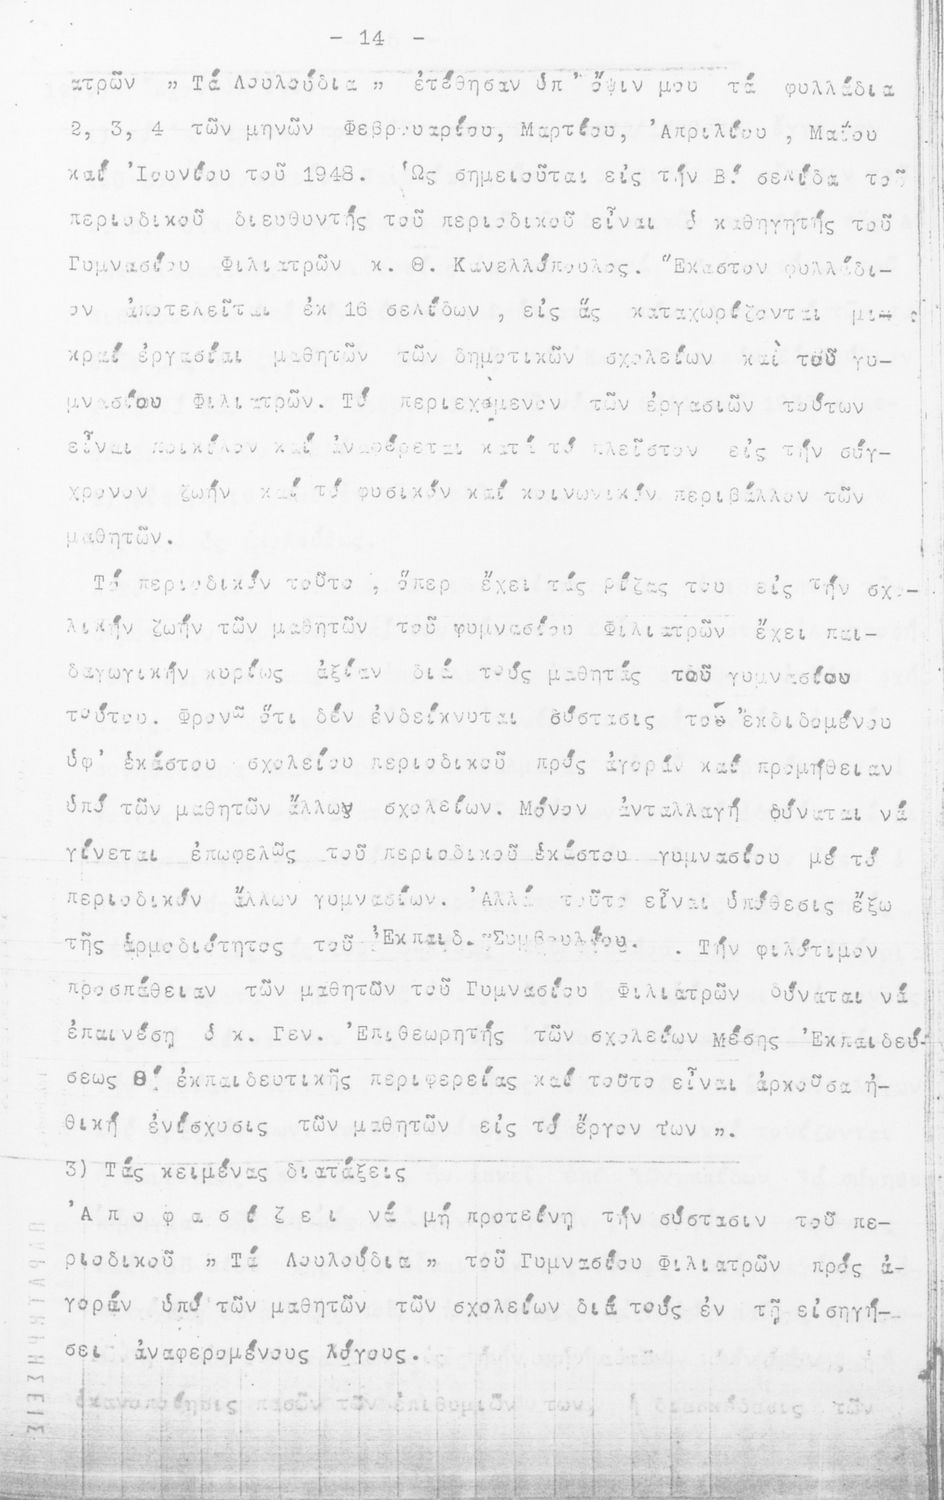 - 14 -
ατρῶν „ Τά Λουλούδια „ ἐτέθησαν ὑπ' ὄψιν μου τά φυλλάδια
2, 3, 4 τῶν μηνῶν Φεβρουαρίου, Μαρτίου, 'Απριλίου , Μαΐου
καί 'Ιουνίου τοῦ 1948. Ὡς σημειοῦται εἰς τήν Β΄ σελίδα τοῦ
περιοδικοῦ διευθυντής τοῦ περιοδικοῦ εἶναι ὁ καθηγητής τοῦ
Γυμνασίου Φιλιατρῶν κ. Θ. Κανελλόπουλος. Ἕκαστον φυλλάδι-
ον ἀποτελεῖται ἐκ 16 σελίδων , εἰς ἅς καταχωρίζονται μι-
κραί ἐργασίαι μαθητῶν τῶν δημοτικῶν σχολείων καὶ τοῦ γυ-
μνασίου Φιλιατρῶν. Τό περιεχόμενον τῶν ἐργασιῶν τούτων
εἶναι ποικίλον καί ἀναφέρεται κατά τό πλεῖστον εἰς τήν σύγ-
χρονον ζωήν καί τό φυσικόν καί κοινωνικόν περιβάλλον τῶν
μαθητῶν.
Τό περιοδικόν τοῦτο , ὅπερ ἔχει τάς ρίζας του εἰς τήν σχο-
λικήν ζωήν τῶν μαθητῶν τοῦ γυμνασίου Φιλιατρῶν ἔχει παι-
δαγωγικήν κυρίως ἀξίαν διά τούς μαθητάς τοῦ γυμνασίου
τούτου. Φρονῶ ὅτι δέν ἐνδείκνυται σύστασις τοῦ ἐκδιδομένου
ὑφ' ἑκάστου σχολείου περιοδικοῦ πρός ἀγοράν καί προμήθειαν
ὑπό τῶν μαθητῶν ἄλλων σχολείων. Μόνον ἀνταλλαγή δύναται νά
γίνεται ἐπωφελῶς τοῦ περιοδικοῦ ἑκάστου γυμνασίου μέ τό
περιοδικόν ἄλλων γυμνασίων. 'Αλλά τοῦτο εἶναι ὑπόθεσις ἔξω
τῆς ἁρμοδιότητος τοῦ 'Εκπαιδ. Συμβουλίου. . Τήν φιλότιμον
προσπάθειαν τῶν μαθητῶν τοῦ Γυμνασίου Φιλιατρῶν δύναται νά
ἐπαινέση ὁ κ. Γεν. 'Επιθεωρητής τῶν σχολείων Μέσης 'Εκπαιδεύ-
σεως Θ΄ ἐκπαιδευτικῆς περιφερείας καί τοῦτο εἶναι ἀρκοῦσα ἠ-
θική ἐνίσχυσις τῶν μαθητῶν εἰς τό ἔργον των „.
3) Τάς κειμένας διατάξεις
'Α π ο φ α σ ί ζ ε ι νά μή προτείνη τήν σύστασιν τοῦ πε-
ριοδικοῦ „ Τά Λουλούδια „ τοῦ Γυμνασίου Φιλιατρῶν πρός ἀ-
γοράν ὑπό τῶν μαθητῶν τῶν σχολείων διά τούς ἐν τῇ εἰσηγή-
σει ἀναφερομένους λόγους.